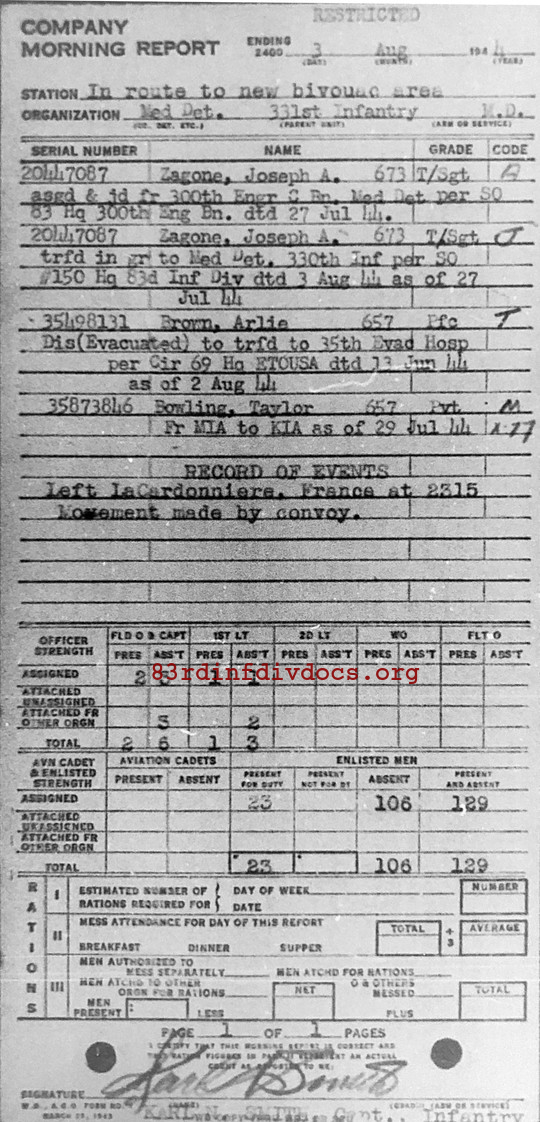 RESTRICTED
COMPANY
MORNING REPORT
ENDING
2400 3 Aug 1944
(DAY) (MONTH) (YEAR)
STATION In route to new bivouac area
ORGANIZATION Med Det. 331st Infantry M.D.
(CO. DET. ETC.) (PARENT UNIT) (ARM OR SERVICE)
SERIAL NUMBER NAME GRADE CODE
20447087 Zagone, Joseph A. 673 T/Sgt A
asgd & jd fr 300th Engr C Bn. Med Det per SO
83 Hq 300th Eng Bn. dtd 27 Jul 44.
20447087 Zagone, Joseph A. 673 T/Sgt J
trfd in gr to Med Det. 330th Inf per SO
#150 Hq 83d Inf Div dtd 3 Aug 44 as of 27
Jul 44
35498131 Brown, Arlie 657 Pfc T
Dis(Evacuated) to trfd to 35th Evac Hosp
per Cir 69 Hq ETOUSA dtd 13 Jun 44
as of 2 Aug 44
35873846 Bowling, Taylor 657 Pvt M
Fr MIA to KIA as of 29 Jul 44
RECORD OF EVENTS
Left LaCardonniere, France at 2315
Movement made by convoy.
OFFICER STRENGTH FLD O & CAPT 1ST LT 2D LT WO FLT O
PRES ABS'T PRES ABS'T PRES ABS'T PRES ABS'T PRES ABS'T
83rdinfdivdocs.org
ASSIGNED 2 3 1 1
ATTACHED UNASSIGNED
ATTACHED FR OTHER ORGN 3 2
TOTAL 2 6 1 3
AVN CADET & ENLISTED STRENGTH AVIATION CADETS ENLISTED MEN
PRESENT ABSENT PRESENT FOR DUTY PRESENT NOT FOR DY ABSENT PRESENT AND ABSENT
ASSIGNED 23 106 129
ATTACHED UNASSIGNED
ATTACHED FR OTHER ORGN
TOTAL 23 106 129
RATIONS
I ESTIMATED NUMBER OF RATIONS REQUIRED FOR { DAY OF WEEK DATE NUMBER
II MESS ATTENDANCE FOR DAY OF THIS REPORT TOTAL ÷ 3 AVERAGE
BREAKFAST DINNER SUPPER
III MEN AUTHORIZED TO MESS SEPARATELY MEN ATCHD FOR RATIONS
MEN ATCHD TO OTHER ORGN FOR RATIONS NET O & OTHERS MESSED TOTAL
MEN PRESENT LESS PLUS
PAGE 1 OF 1 PAGES
I CERTIFY THAT THIS MORNING REPORT IS CORRECT AND
THAT RATION FIGURES IN PART II REPRESENT AN ACTUAL
COUNT AS REPORTED TO ME:
SIGNATURE Karl N Smith
W.D., A.G.O. FORM NO.
MARCH 25, 1943
KARL N. SMITH, Capt., Infantry